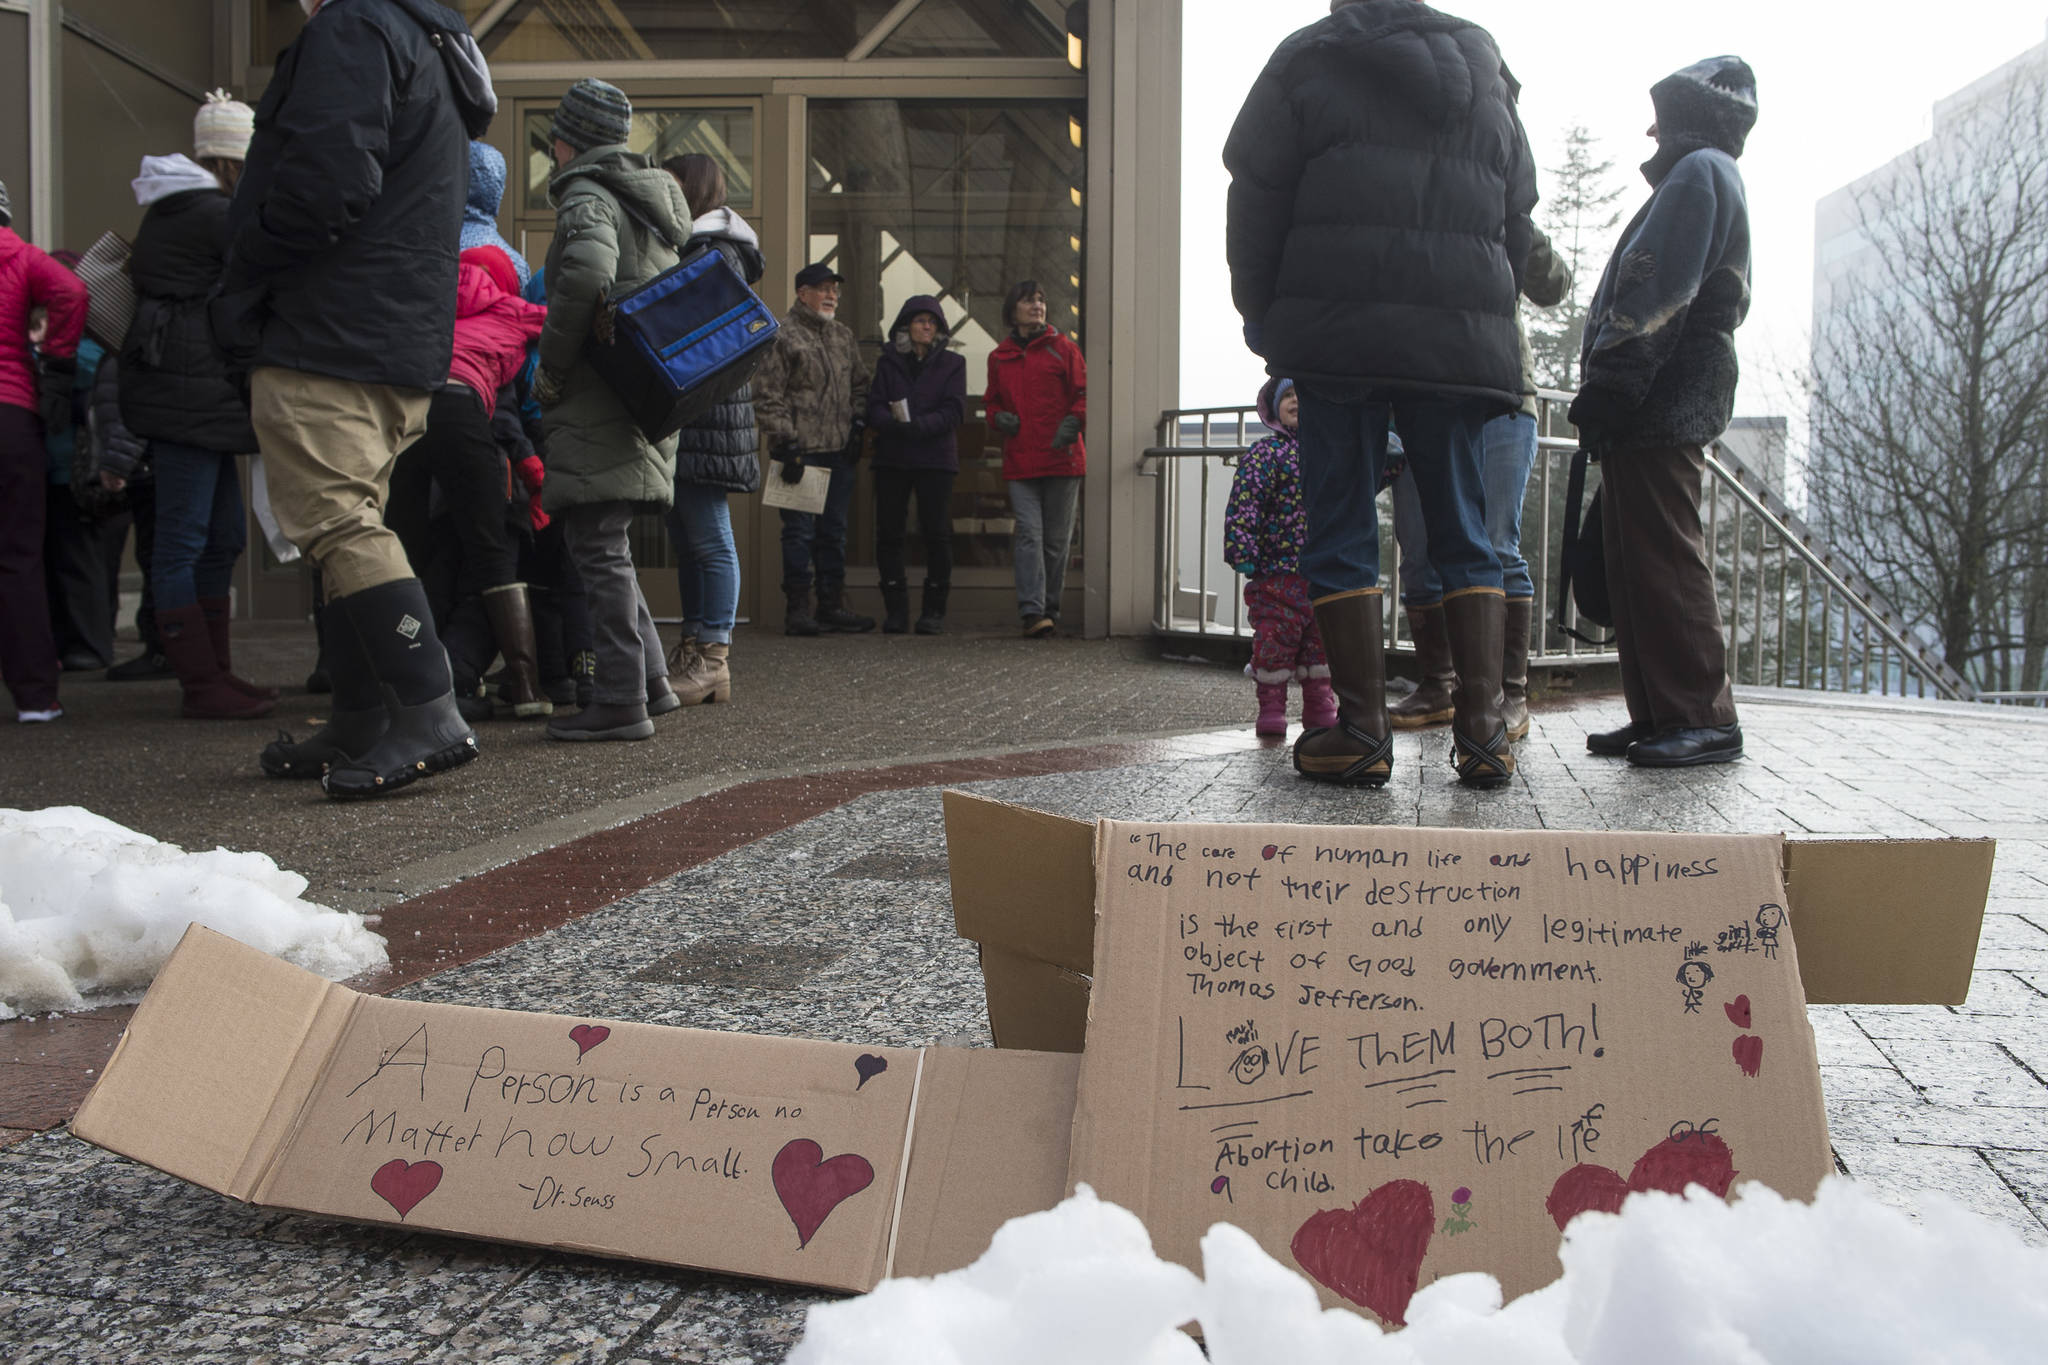 "The care of human life and happiness
and not their destruction
is the first and only legitimate
object of Good government.
Thomas Jefferson.
LOVE THEM BOTH!
Abortion takes the life of
a child.
A Person is a Person no
Matter how Small.
-Dr. Seuss